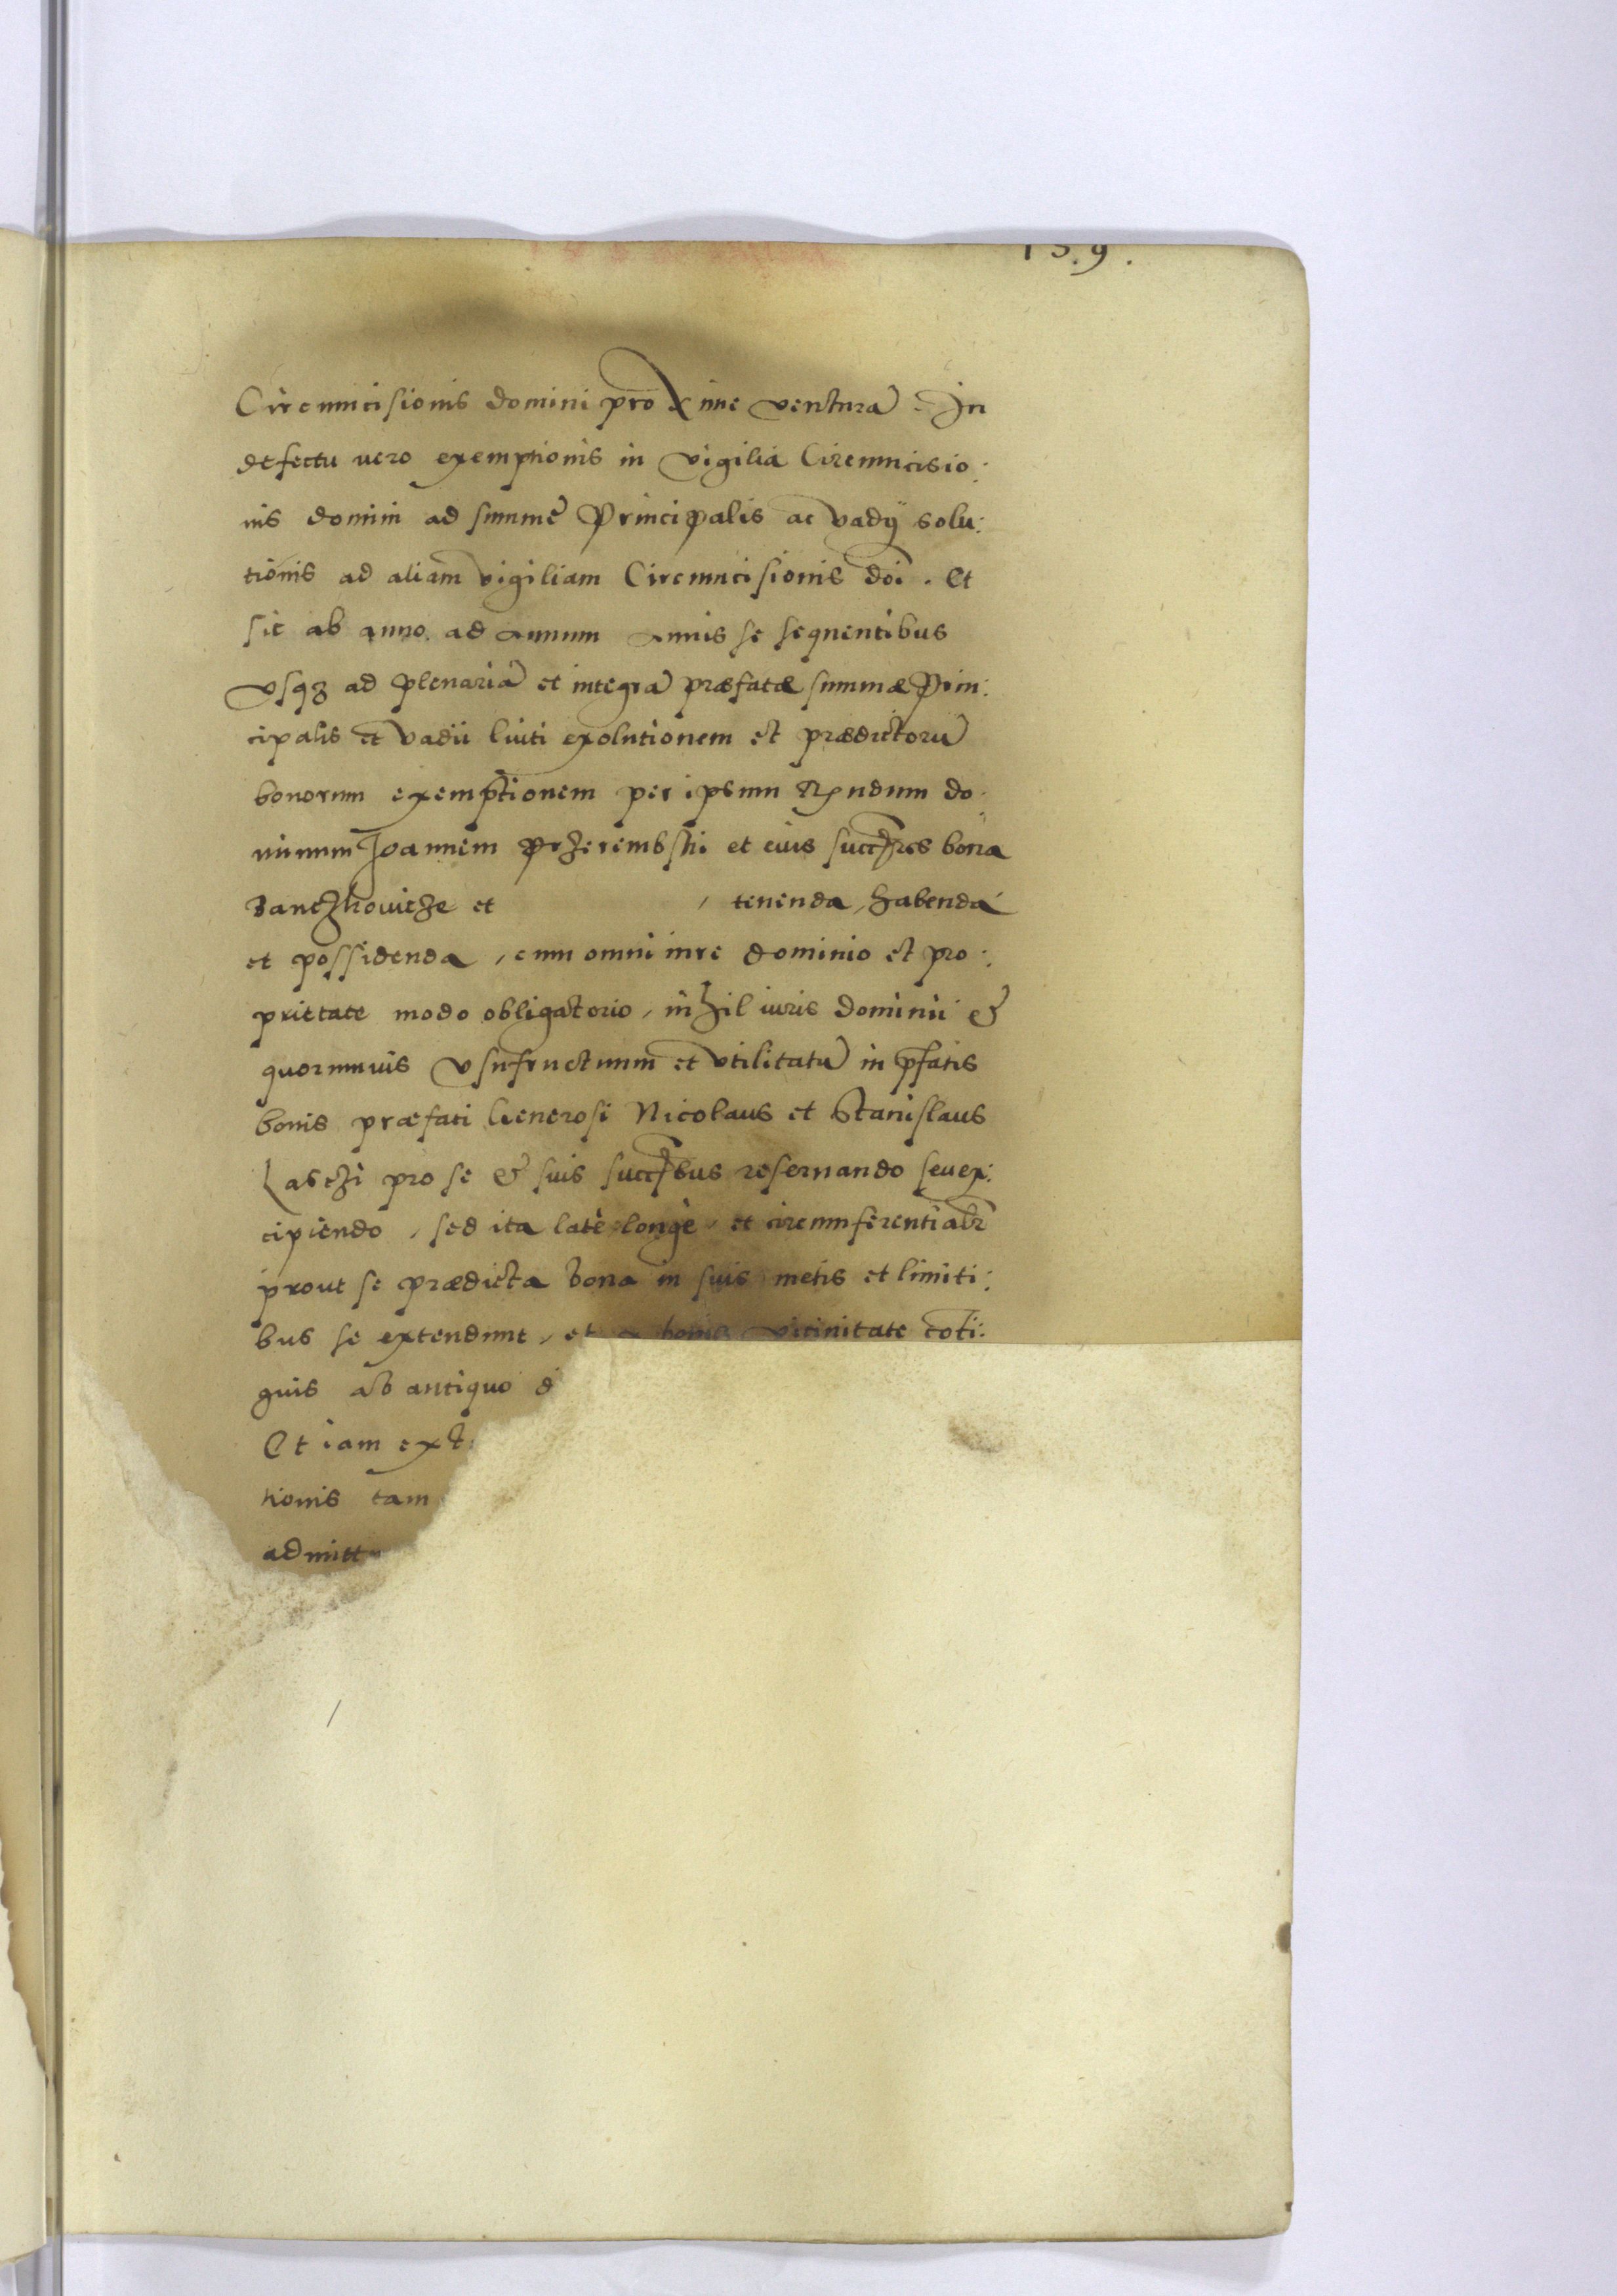 139.
Circumcisionis domini proxime venturã. In
defectu vero exemptionis in vigilia Circumcisio:
nis domini ad summe Principalis ac vadÿ solu:
tionis ad aliam vigiliam Circumcisionis doĩ. Et
sic ab anno ad annum annis se sequentibus
vsqз ad plenariã et integrã præfatæ summæ Prin:
cipalis et vadii luiti exolutionem et prædictorũ
bonorum exemptionem per ipsum Rndum do:
minum Joannem Przerembski et eius succres bona
Banczkowicze et , tenenda, habenda
et possidenda, cum omni iure dominio et pro:
prietate modo obligatorio, nihil iuris dominii &
quorumuis vsufructuum et vtilitatũ in pfatis
bonis præfati Generosi Nicolaus et Stanislaus
Lasczi pro se & suis succbus reseruando seu ex:
cipiendo, sed ita late longe, et circumferentialr
prout se prædicta bona in suis metis et limiti:
bus se extendunt, et bonis vicinitate cõti:
guis ab antiquo d
Et iam ext
tionis tam
admitt